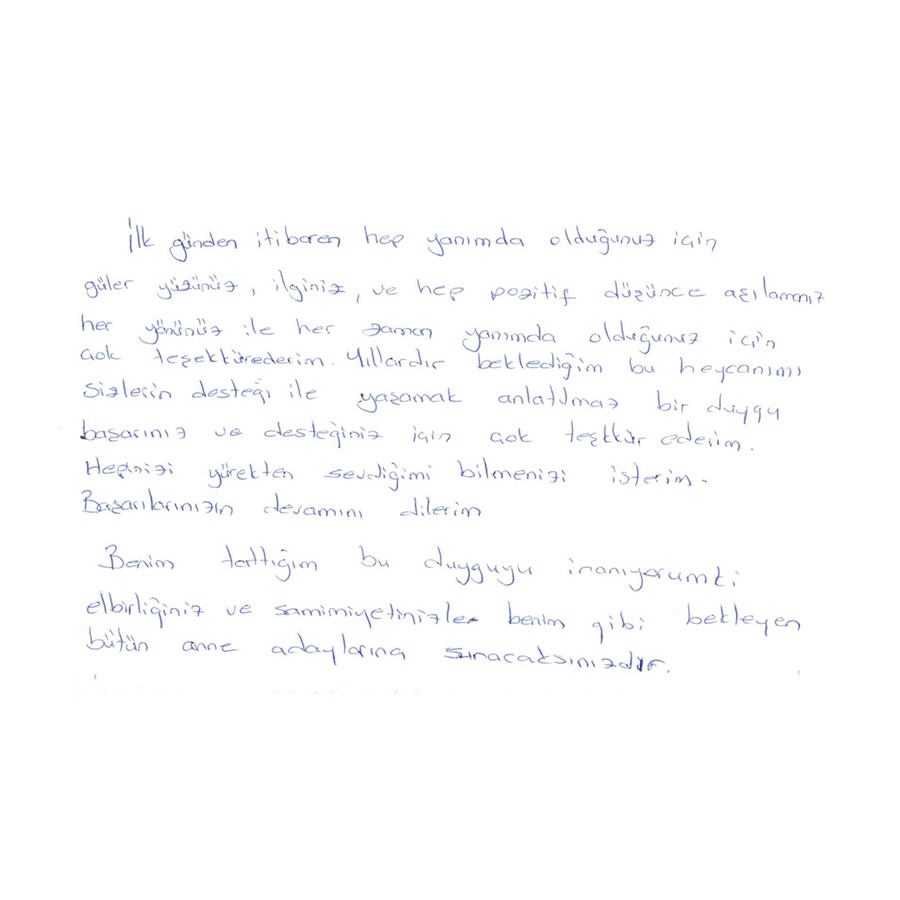 İlk günden itibaren hep yanımda olduğunuz için
güler yüzünüz, ilginiz, ve hep pozitif düşünce aşılamanız
her yönünüz ile her zaman yanımda olduğunuz için
çok teşekkürederim. Yıllardır beklediğim bu heycanımı
sizlerin desteği ile yaşamak anlatılmaz bir duygu
başarınız ve desteğiniz için çok teşkkür ederim.
Hepnizi yürekten sevdiğimi bilmenizi isterim.
Başarılarınızın devamını dilerim
Benim tattığım bu duyguyu inanıyorumki
elbirliğiniz ve samimiyetinizle benim gibi bekleyen
bütün anne adaylarına sunacaksınızdır.